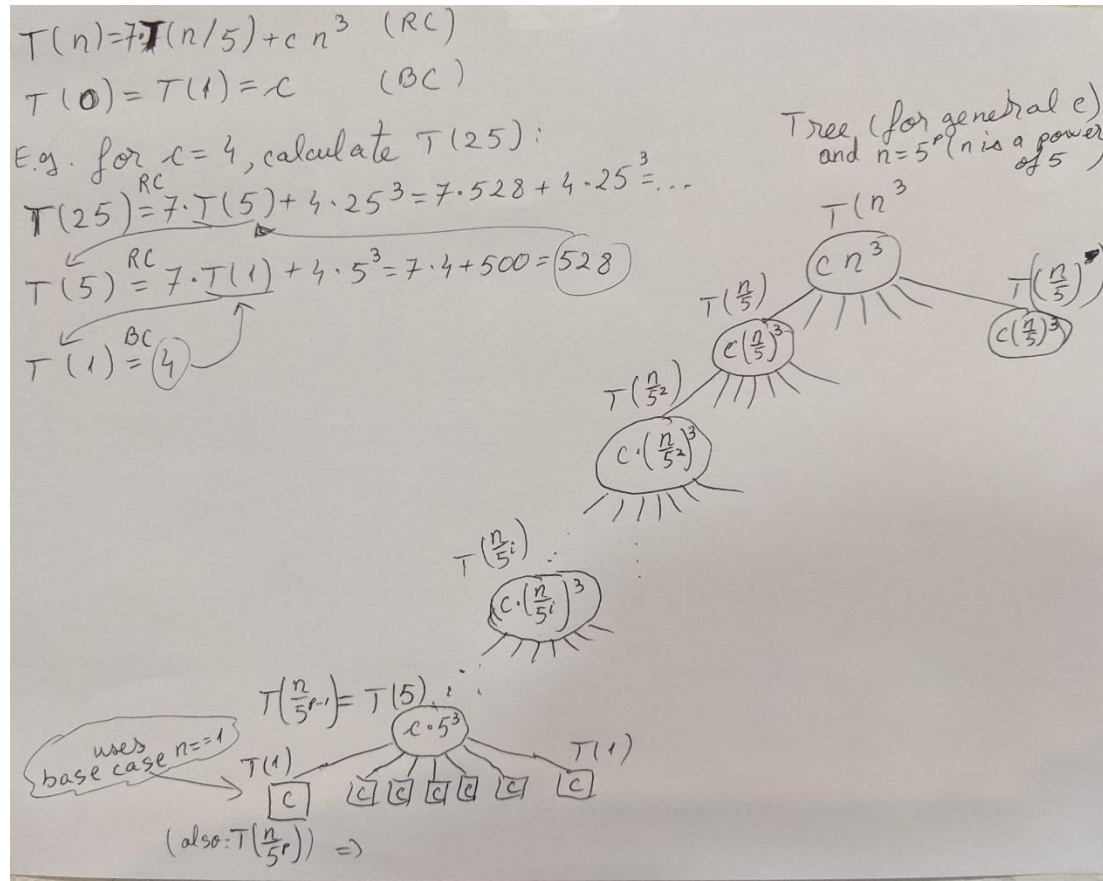 T(n)=7·T(n/5)+c n³ (RC)
T(0)=T(1)=c (BC)
E.g. for c=4, calculate T(25):
T(25) RC= 7·T(5)+4·25³=7·528+4·25³=...
T(5) RC= 7·T(1)+4·5³=7·4+500=528
T(1) BC= 4
Tree (for general c)
and n=5^p (n is a power
of 5)
T(n³
cn³
T(n/5) T(n/5)
c(n/5)³ c(n/5)³
T(n/5²)
c·(n/5²)³
T(n/5^i)
c·(n/5^i)³
T(n/5^(p-1))=T(5)
c·5³
uses
base case n==1
T(1) T(1)
c c c c c c c
(also:T(n/5^p)) =>